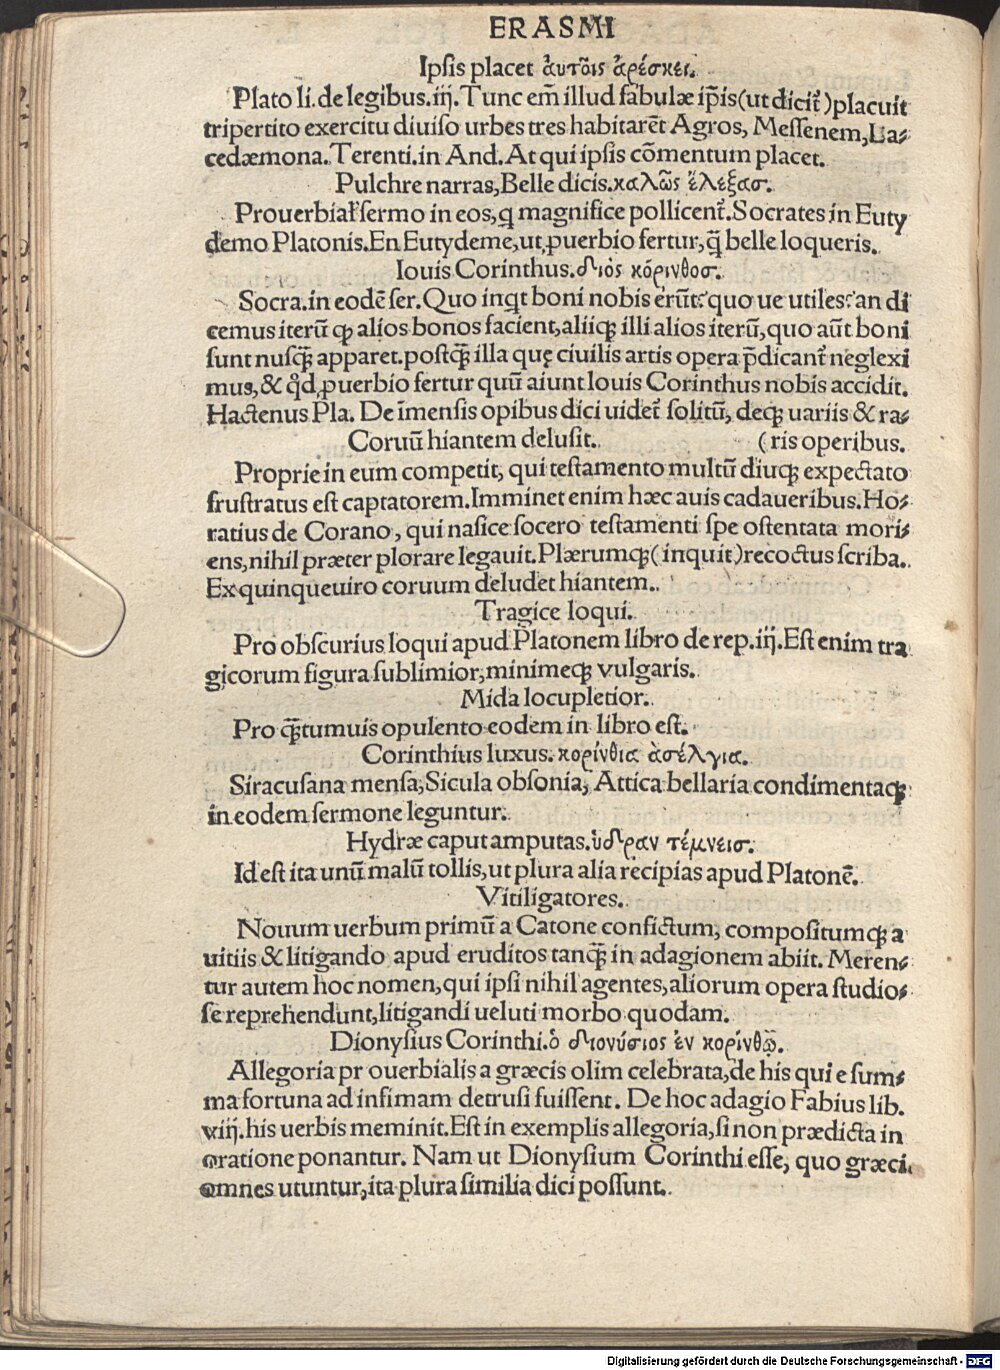 ERASMI
Ipsis placet ἀυτοῖς ἀρέσκει.
Plato li. de legibus. iij. Tunc em̄ illud fabulæ ip̄is (ut dicit᷑) placuit
tripertito exercitu diuiso urbes tres habitarēt Agros, Messenem, La⸗
cedæmona. Terenti. in And. At qui ipsis cōmentum placet.
Pulchre narras, Belle dicis. καλῶς ἔλεξασ.
Prouerbial' sermo in eos, q magnifice pollicent᷑. Socrates in Euty
demo Platonis. En Eutydeme, ut ꝓuerbio fertur, q̄ belle loqueris.
Iouis Corinthus. διὸς κόρινθοσ.
Socra. in eodē ser. Quo inqt boni nobis erūt? quo ue utiles? an di
cemus iterū ꝙ alios bonos facient, aliiqꝫ illi alios iterū, quo aūt boni
sunt nusq̄ apparet. postq̄ illa quę ciuilis artis opera p̄dicant᷑ neglexi
mus, & qd ꝓuerbio fertur quū aiunt Iouis Corinthus nobis accidit.
Hactenus Pla. De īmensis opibus dici uidet᷑ solitū, deqꝫ uariis & ra⸗
Coruū hiantem delusit. (ris operibus.
Proprie in eum competit, qui testamento multū diuqꝫ expectato
frustratus est captatorem. Imminet enim hæc auis cadaueribus. Ho⸗
ratius de Corano, qui nasice socero testamenti spe ostentata mori⸗
ens, nihil præter plorare legauit. Plærumqꝫ (inquit) recoctus scriba.
Ex quinqueuiro coruum deludet hiantem.
Tragice loqui.
Pro obscurius loqui apud Platonem libro de rep. iij. Est enim tra
gicorum figura sublimior, minimeqꝫ vulgaris.
Mida locupletior.
Pro q̄tumuis opulento eodem in libro est.
Corinthius luxus. κορίνθια ἀσέλγια.
Siracusana mensa, Sicula obsonia, Attica bellaria condimentaqꝫ
in eodem sermone leguntur.
Hydræ caput amputas. ὑδραν τέμνεισ.
Id est ita unū malū tollis, ut plura alia recipias apud Platonē.
Vitiligatores.
Nouum uerbum primū a Catone confictum, compositumqꝫ a
uitiis & litigando apud eruditos tanq̄ in adagionem abiit. Meren⸗
tur autem hoc nomen, qui ipsi nihil agentes, aliorum opera studio⸗
se reprehendunt, litigandi ueluti morbo quodam.
Dionysius Corinthi. ὁ διονύσιος ἐν κορίνθῳ.
Allegoria pr ouerbialis a græcis olim celebrata, de his qui e sum⸗
ma fortuna ad infimam detrusi fuissent. De hoc adagio Fabius lib.
viij. his uerbis meminit. Est in exemplis allegoria, si non prædicta in
oratione ponantur. Nam ut Dionysium Corinthi esse, quo græci
omnes utuntur, ita plura similia dici possunt.
Digitalisierung gefördert durch die Deutsche Forschungsgemeinschaft - DFG